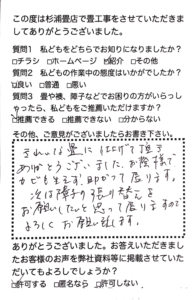 この度は杉浦畳店で畳工事をさせていただきま
してありがとうございました。
質問1 私どもをどちらでお知りになりましたか?
□チラシ □ホームページ ☑紹介 □その他
質問2 私どもの作業中の態度はいかがでしたか?
☑良い □普通 □悪い
質問3 畳や襖、障子などでお困りの方がいらっし
ゃったら、私どもを推薦いただけますか?
☑推薦できる □推薦できない □分からない
その他、ご意見がございましたらお書き下さい。
きれいな畳に仕上げて頂き
ありがとうございました。お陰様で
カビも生えず助かって居ります。
次は障子の張り替えを
お願いしたいと思って居りますので
よろしくお願い致します。
ありがとうございました。お答えいただきまし
たお客様のお声を弊社資料等に掲載させていた
だいてもよろしいでしょうか?
☑許可する □匿名なら □許可しない